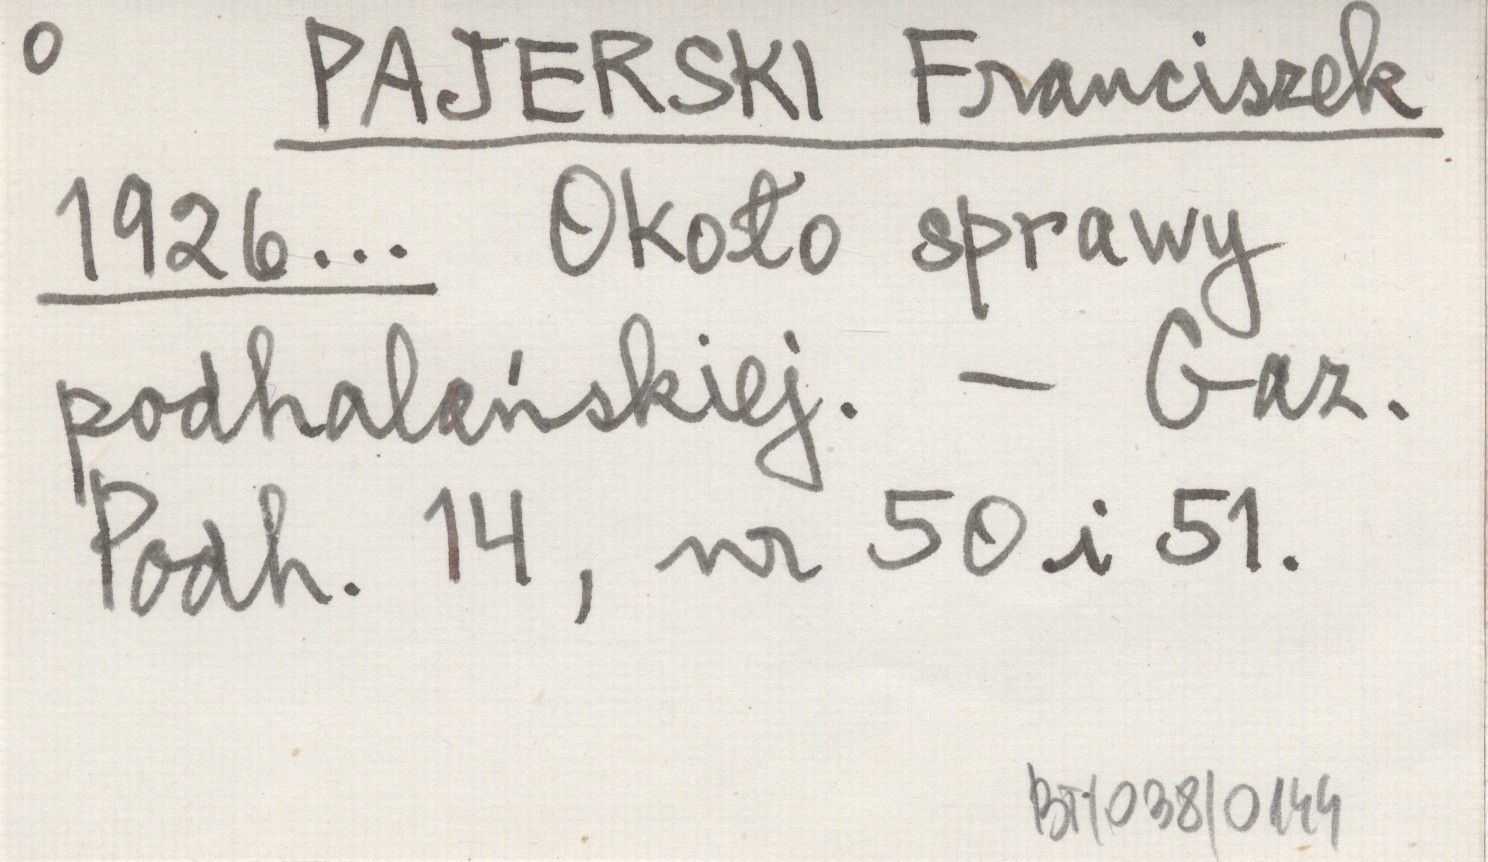 o PAJERSKI Franciszek
1926... Około sprawy
podhalańskiej. — Gaz.
Podh. 14, nr 50 i 51.
BT/038/0144